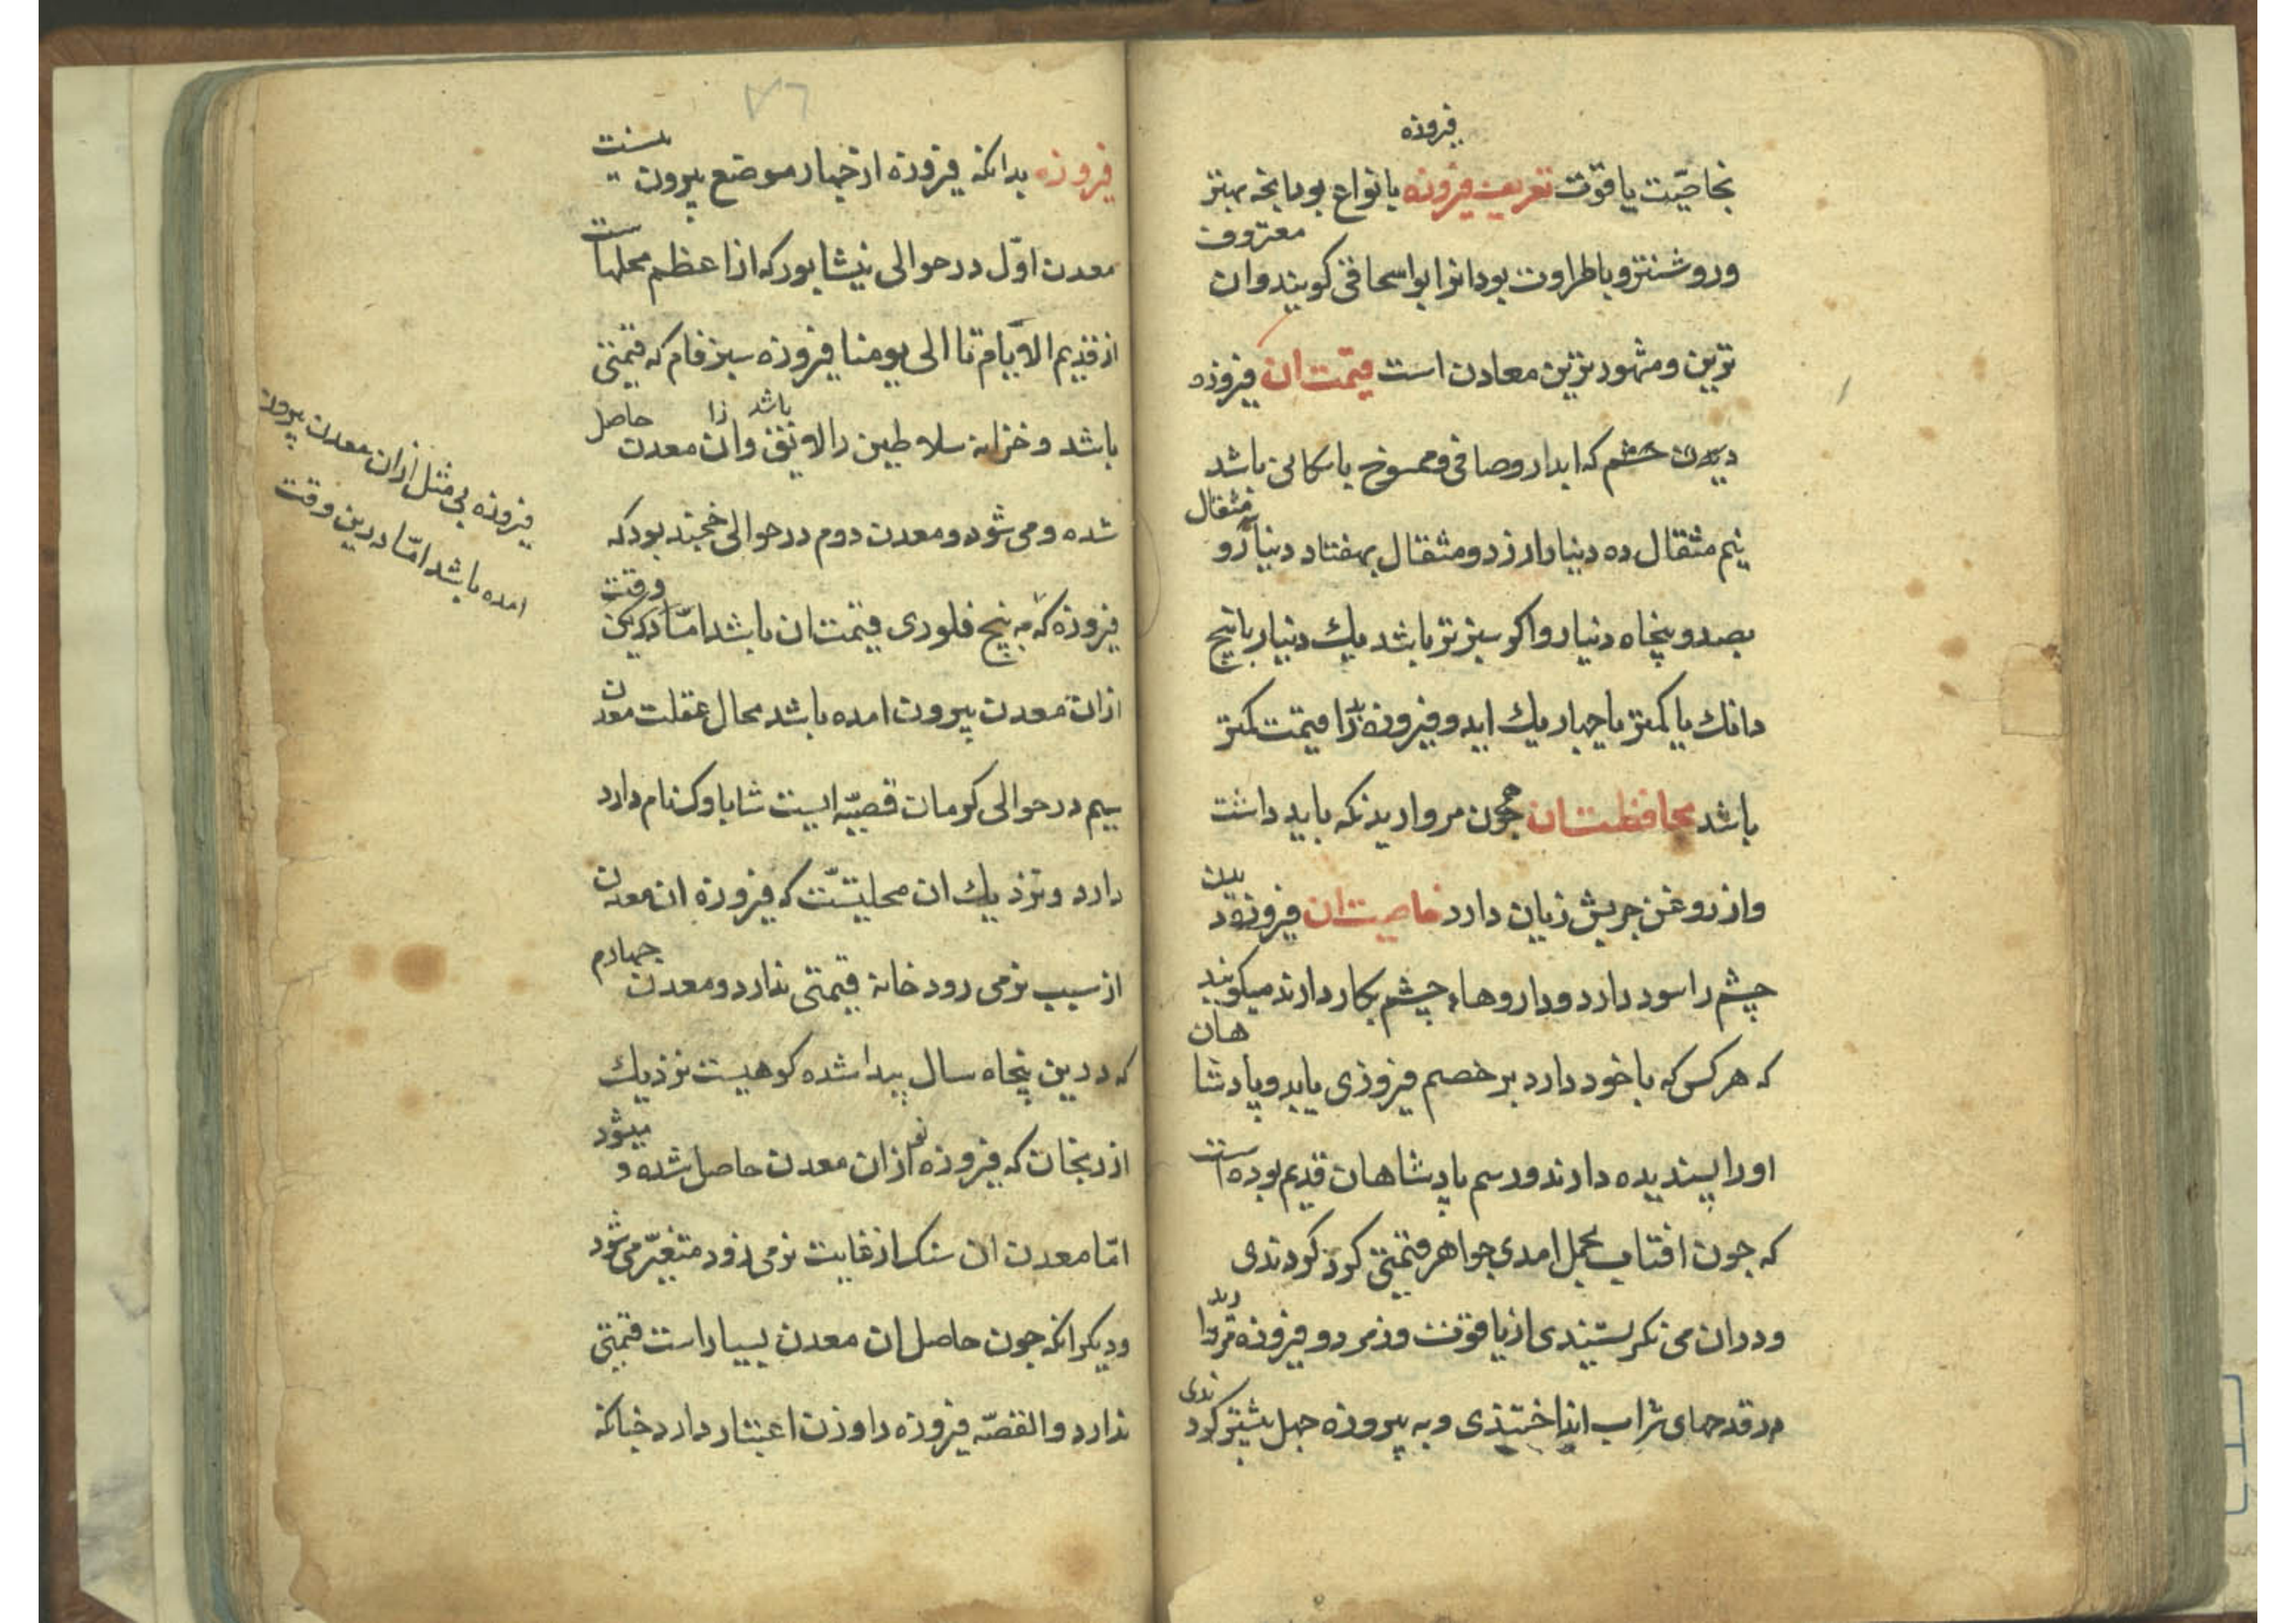 فیروزه
بخاصیّت یاقوت تعریف فیروزه بانواع بود انچه بهتر
وروشنتر و باطراوت بود انرا ابواسحاقی کویند وان معروف
ترین ومشهورترین معادن است قیمت ان فیروزه
که ابدار وصافی وممسوخ باشد
نیم مثقال ده دینار ارزد ومثقال بهفتاد دینار و مثقال
بصد و پنجاه دینار واکر سبزتر باشد یك دینار یا پنج
دانك یا کمتر یا چهار یك اید وفیروزه را قیمت کمتر
باشد محافظت ان همچون مروارید نکه باید داشت
واز روغن چربش زیان دارد خاصیت ان فیروزه
چشم را سود دارد وداروهاء چشم بکار دارند میکویند
که هرکس که با خود دارد بر خصم فیروزی یابد وپادشا هان
اورا پسندیده دارند ورسم پادشاهان قدیم بوده است
که چون افتاب بحمل امدی جواهر قیمتی کرد کردندی
ودران می نکرستندی از یاقوت وزمرد و فیروزه
در قدحهای شراب انداختندی و به پیروزه جهل بیشتر کرد ندی
۷۶
فیروزه بدانکه فیروزه از چهار موضع بیرون نیست
معدن اوّل در حوالی نیشابور که از اعظم محلها ست
از قدیم الایّام تا الی یومنا فیروزه سبز فام که قیمتی
باشد و خزانه سلاطین را لایق باشد وان معدن حاصل
شده و می شود ومعدن دوم در حوالی خجند بود که
فیروزه که به پنج فلوری قیمت ان باشد امّا درین وقت
ازان معدن بیرون امده باشد محال عقلست معدن
سیم در حوالی کرمان قصبّه ایست شابابک نام دارد
دارد ونزذیك ان محلیّست که فیروزه ان معدن
از سبب نرمی رود خانه قیمتی ندارد ومعدن چهارم
که درین پنجاه سال پیدا شده کوهیست نزذیك
اذربیجان که فیروزه ازان معدن حاصل شده و میشود
امّا معدن ان سنك از غایت نرمی زود متغیّر می شود
ودیکر انکه چون حاصل ان معدن بسیار است قیمتی
ندارد والقصّه فیروزه را وزن اعتبار دارد چنانکه
فیروزه بی مثل ازان معدن بیرون
امده باشد امّا درین وقت